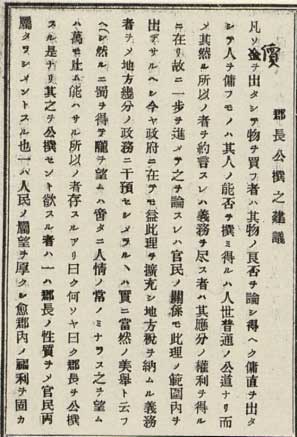 價
郡長公撰之建議
凡ソ金ヲ出タシテ物ヲ買フ者ハ其物ノ良否ヲ論シ得ヘク傭直ヲ出タ
シテ人ヲ傭フモノハ其人ノ能否ヲ撰ミ得ルハ人世普通ノ公道ナリ而
メ其然ル所以ノ者ヲ約言スレハ義務ヲ尽ス者ハ其應分ノ權利ヲ得ル
ニ在リ故ニ一歩ヲ進メテ之ヲ論スレハ官民ノ關係モ此理ノ範圍內ヲ
出テサルヘシ今ヤ政府ニ在テモ益此理ヲ擴充シ地方稅ヲ納ムル義務
者ヲメ地方幾分ノ政務ニ干預セシメラルヽハ實ニ當然ノ美擧ト云フ
ヘシ然ルニ蜀ヲ得テ隴ヲ望ムハ啻タニ人情ノ常ノミナラス之ヲ望ム
ハ萬モ止ム能ハサル所以ノ者存スルアリ曰ク何ソヤ曰ク郡長ヲ公撰
スル是ナリ其之ヲ公撰セント欲スル者ハ一ハ郡長ノ性質ヲメ官民両
屬タラシメントスル也一ハ人民ノ屬望ヲ厚クシ愈郡內ノ福利ヲ固カ